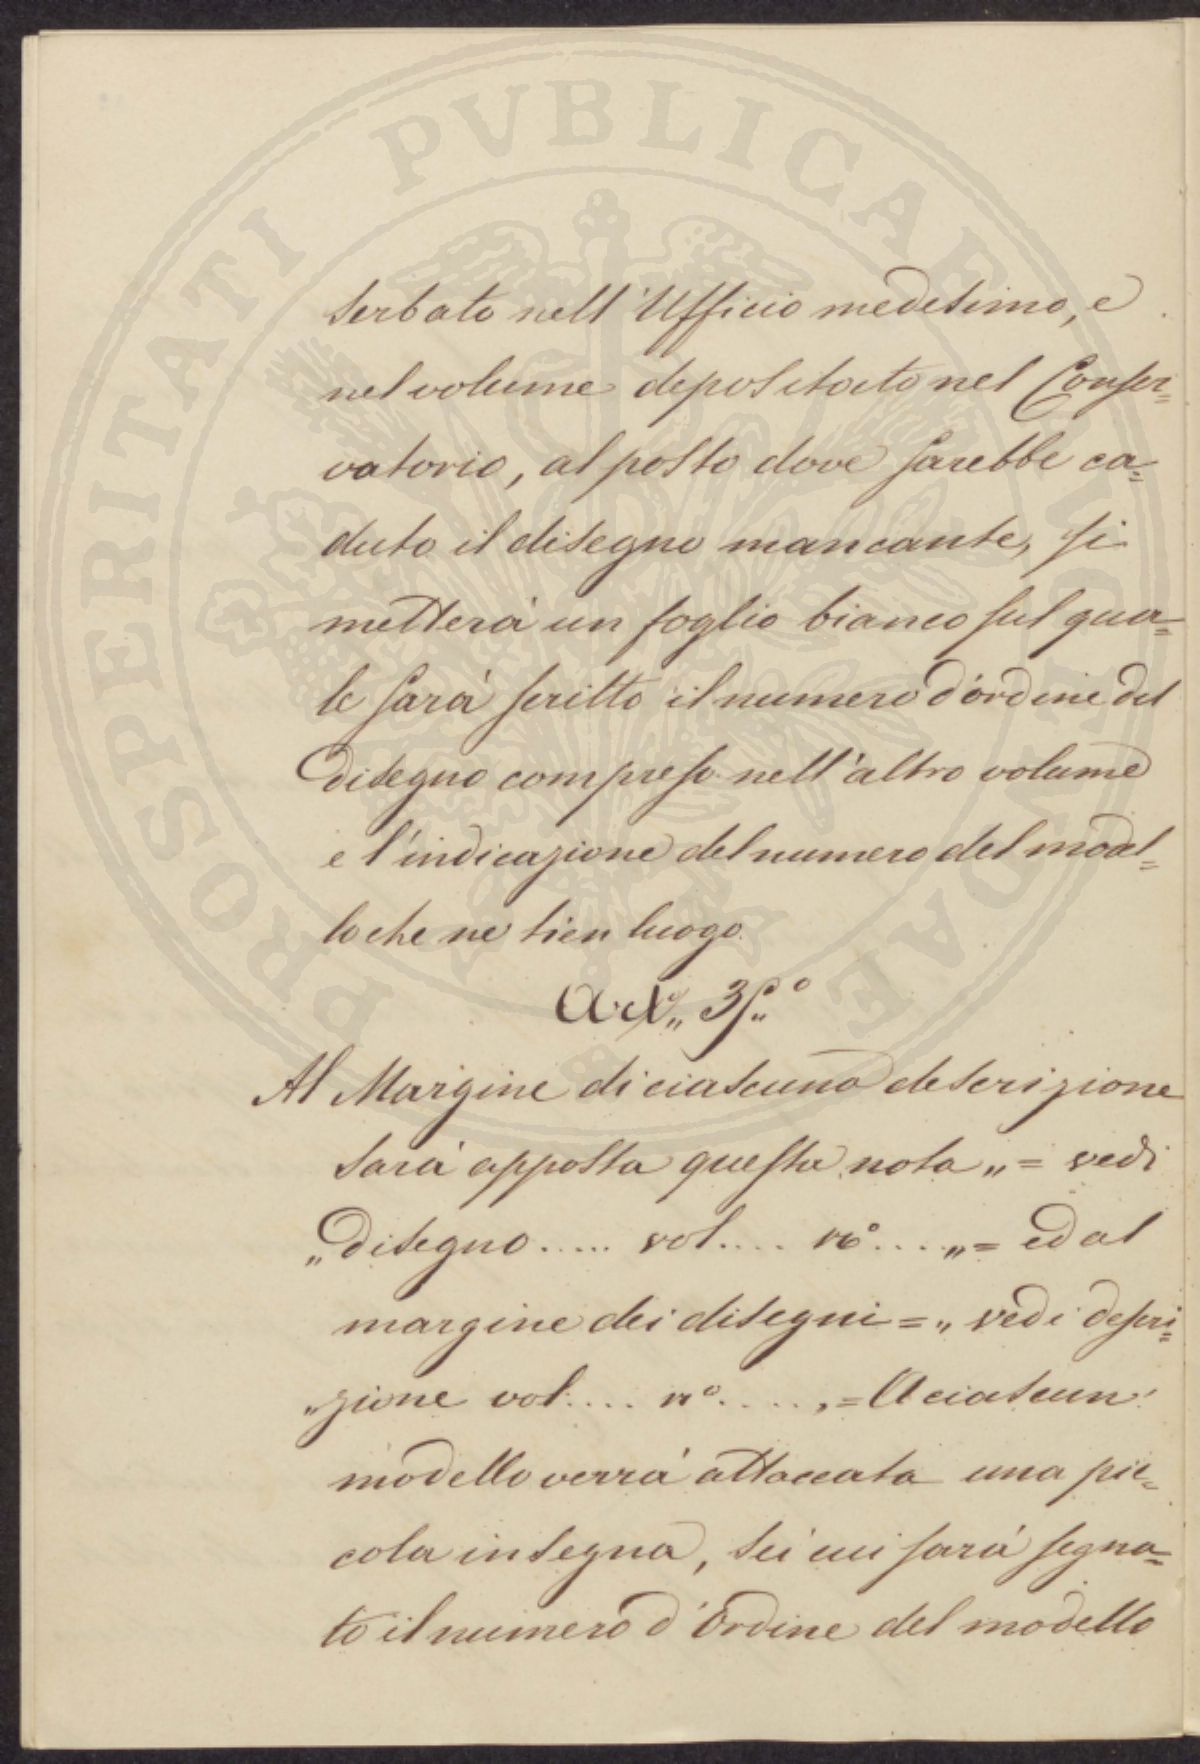 PROSPERITATI PVBLICAE AVGENDAE
serbato nell'Ufficio medesimo, e
nel volume depositato nel Conser=
vatorio, al posto dove sarebbe ca=
duto il disegno mancante, si
metterà un foglio bianco sul qua=
le sarà scritto il numero d'ordine del
disegno compreso nell'altro volume
e l'indicazione del numero del model=
lo che ne tien luogo.
Art.° 35.°
Al Margine di ciascuna descrizione
sarà apposta questa nota „= vedi
„disegno ..... vol.... n° .... „= ed al
margine dei disegni = „ vedi descri=
„zione vol.... n° ...., = A ciascun
modello verrà attaccata una pic=
cola insegna, su cui sarà segna=
to il numero d'Ordine del modello